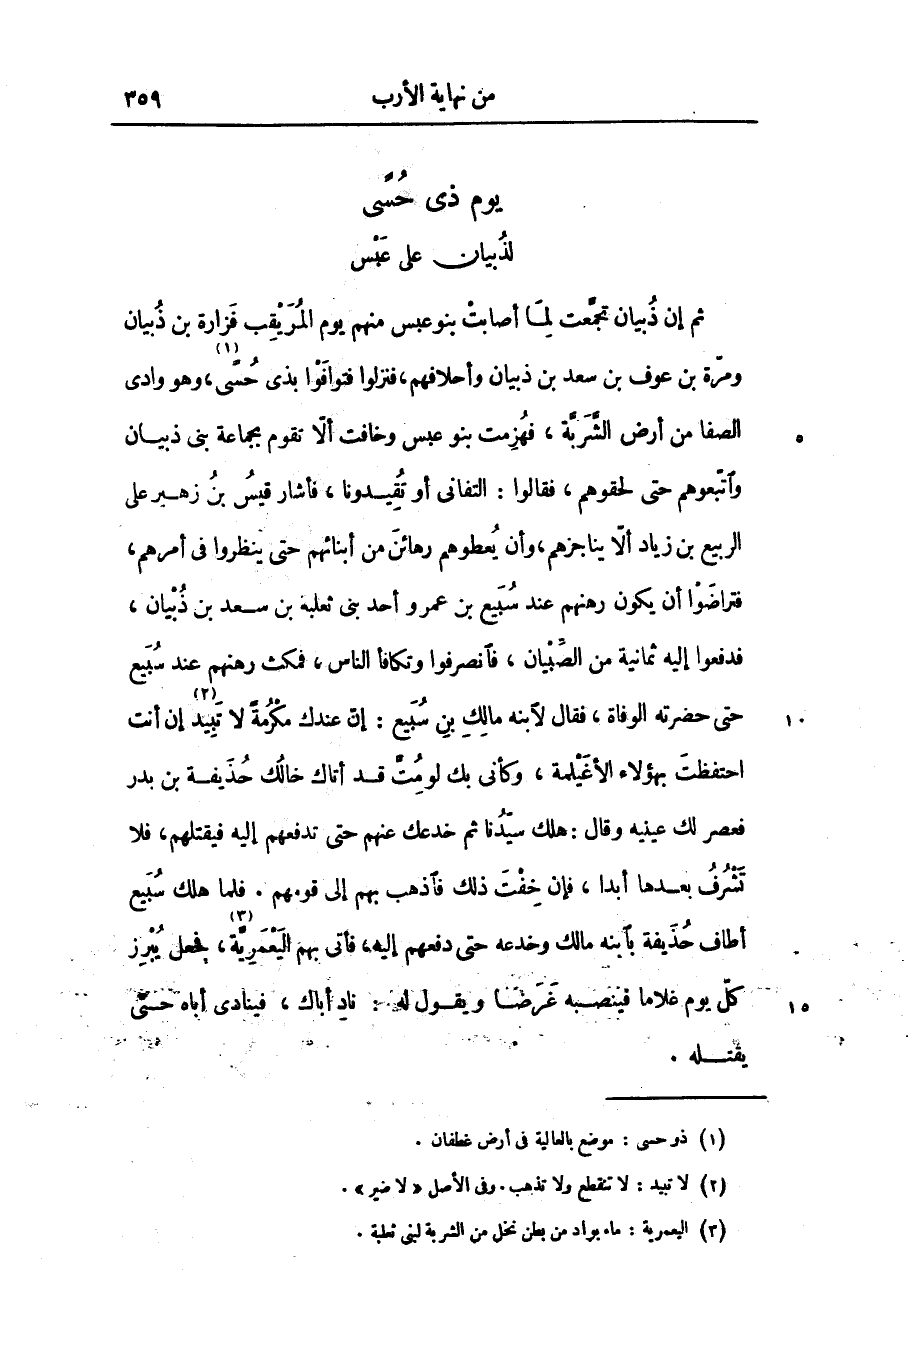 من نهاية الأرب ٣٥٩
يوم ذى حُسًى
لذُبيان على عَبْس
ثم إن ذُبيان تجمَّعت لِمَا أصابتْ بنو عبس منهم يوم المُرَيْقِب فَزارة بن ذُبيان
ومرّة بن عوف بن سعد بن ذبيان وأحلافهم، فنزلوا فتوافَوْا بذى حُسًى (١)، وهو وادى
الصفا من أرض الشَّرَبَّة ، فهُزِمت بنو عبس وخافت ألّا تقوم بجماعة بنى ذبيان ٥
وٱتّبعوهم حتى لحقوهم ، فقالوا : التفانى أو تُقِيدونا ، فأشار قيسُ بنُ زهير على
الربيع بن زياد ألّا يناجزهم، وأن يُعطوهم رهائنَ من أبنائهم حتى ينظروا فى أمرهم،
فتراضَوْا أن يكون رهنهم عند سُبَيع بن عمرو أحد بنى ثعلبة بن سعد بن ذُبْيان ،
فدفعوا إليه ثمانية من الصِّبْيان ، فٱنصرفوا وتكافأ الناس ، فمكث رهنهم عند سُبَيع
حتى حضرته الوفاة ، فقال لٱبنه مالكِ بنِ سُبَيع : إنّ عندك مكْرُمةً لا تَبِيد (٢) إن أنت ١٠
احتفظتَ بهؤلاء الأُغَيْلمة ، وكأنى بك لو مُِتُّ قد أتاك خالُك حُذَيفة بن بدر
فعصر لك عينيه وقال : هلك سيّدُنا ثم خدعك عنهم حتى تدفعهم إليه فيقتلهم، فلا
تَشْرُفُ بعدها أبدا ، فإن خِفْتَ ذلك فٱذهب بهم إلى قومهم . فلما هلك سُبَيع
أطاف حُذَيفة بٱبنه مالك وخدعه حتى دفعهم إليه، فأتى بهم اليَعْمَرِيَّة (٣)، فجعل يُبْرِز
كلّ يوم غلاما فينصبه غَرَضا ويقول له : نادِ أباك ، فينادى أباه حتّى ١٥
يقتله .
(١) ذو حسى : موضع بالعالية فى أرض غطفان .
(٢) لا تبيد : لا تنقطع ولا تذهب. وفى الأصل « لا ضير » .
(٣) اليعمرية : ماء بواد من بطن نخل من الشربة لبنى ثعلبة .